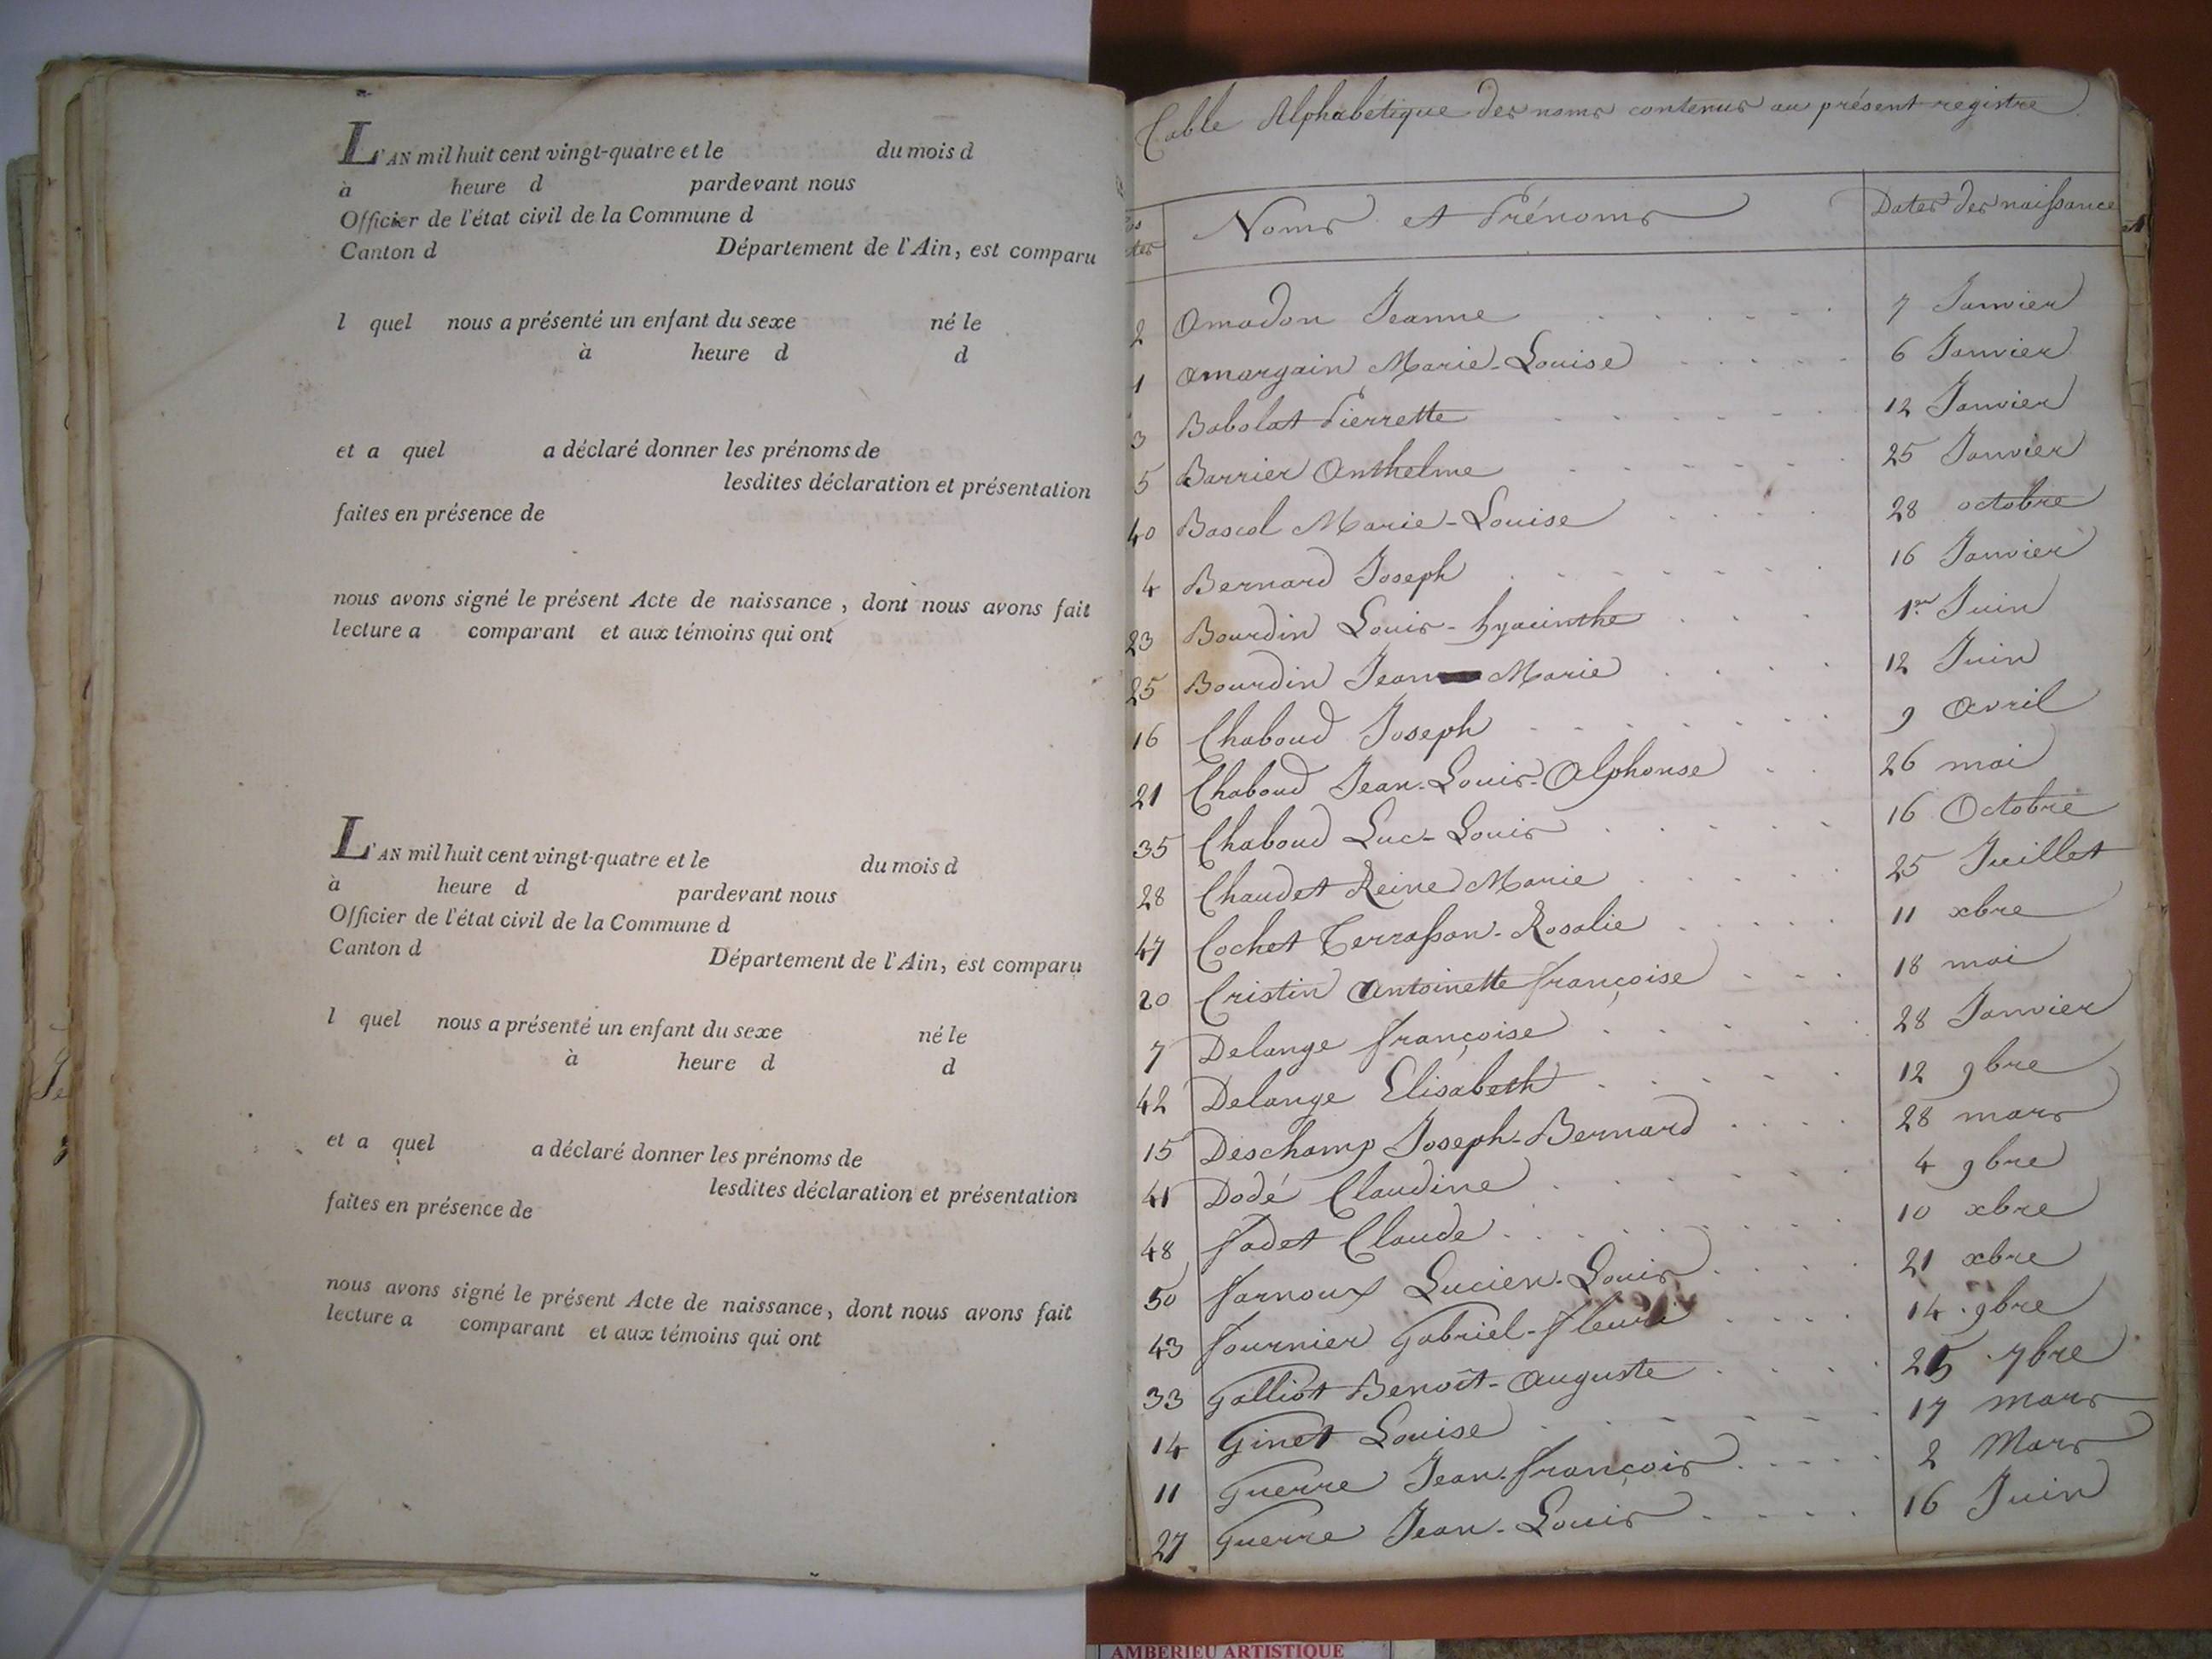 L'AN mil huit cent vingt-quatre et le du mois d
à heure d pardevant nous
Officier de l'état civil de la Commune d
Canton d Département de l'Ain, est comparu
l quel nous a présenté un enfant du sexe né le
à heure d d
et a quel a déclaré donner les prénoms de
lesdites déclaration et présentation
faites en présence de
nous avons signé le présent Acte de naissance, dont nous avons fait
lecture a comparant et aux témoins qui ont
L'AN mil huit cent vingt-quatre et le du mois d
à heure d pardevant nous
Officier de l'état civil de la Commune d
Canton d Département de l'Ain, est comparu
l quel nous a présenté un enfant du sexe né le
à heure d d
et a quel a déclaré donner les prénoms de
lesdites déclaration et présentation
faites en présence de
nous avons signé le présent Acte de naissance, dont nous avons fait
lecture a comparant et aux témoins qui ont
Table Alphabétique des noms contenus au présent registre
Noms et Prénoms Dates des naissance
2 Amadon Jeanne 7 Janvier
1 Amargain Marie-Louise 6 Janvier
3 Babolat Pierrette 12 Janvier
5 Barrier Anthelme 25 Janvier
40 Bascol Marie-Louise 28 octobre
4 Bernard Joseph 16 Janvier
23 Bourdin Louis-hyacinthe 1er Juin
25 Bourdin Jean Marie 12 Juin
16 Chaboud Joseph 9 Avril
21 Chaboud Jean-Louis-Alphonse 26 mai
35 Chaboud Luc-Louis 16 Octobre
28 Chaudet Reine Marie 25 Juillet
47 Cochet Terrasson-Rosalie 11 xbre
20 Cristin Antoinette françoise 18 mai
7 Delange françoise 28 Janvier
42 Delange Elisabeth 12 9bre
15 Deschamp Joseph-Bernard 28 mars
41 Dodé Claudine 4 9bre
48 fadet Claude 10 xbre
50 farnoux Lucien-Louis 21 xbre
43 fournier Gabriel-fleuri 14 9bre
33 Galliot Benoît-Auguste 25 7bre
14 Ginet Louise 17 mars
11 Guerre Jean-françois 2 Mars
27 Guerre Jean-Louis 16 Juin
AMBERIEU ARTISTIQUE